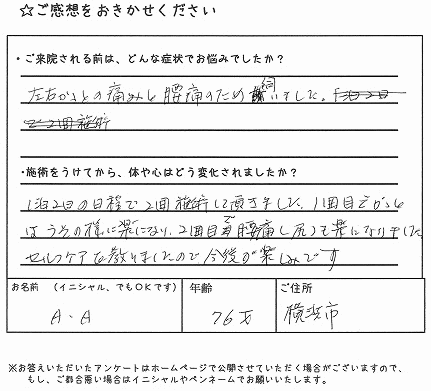 ☆ご感想をおきかせください
・ご来院される前は、どんな症状でお悩みでしたか？
左右かかとの痛みと腰痛のため伺いました。
2回施術
・施術をうけてから、体や心はどう変化されましたか？
1泊2日の日程で2回施術して頂きました。1回目でかかと
はうその様に楽になり、2回目で腰痛も尻も楽になりました
セルフケアを教りましたので今後が楽しみです
お名前 （イニシャル、でもOKです）
年齢
ご住所
A.A
76才
横浜市
※お答えいただいたアンケートはホームページで公開させていただく場合がございますので、
もし、ご都合悪い場合はイニシャルやペンネームでお願いいたします。